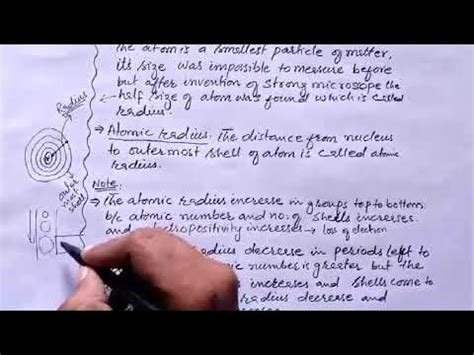 the atom is a smallest particle of metter,
its size was impossible to measure before
but after invention of strong microscope the
half size of atom was found which is called
radius.
Radius
⇒ Atomic radius: The distance from nucleus
to outermost shell of atom is called atomic
radius.
outer
most
shell
Note:
⇒ The atomic radius increase in groups top to bottom
b/c atomic number and no. of shells increases.
and electropositivity increases → loss of electron
radius decrease in periods left to
number is greater but the
increases and shells come to
radius decrease and
increases